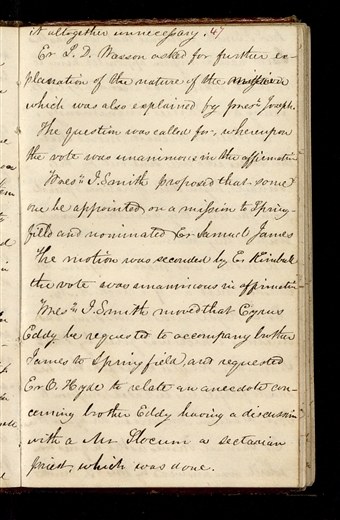 it altogether unnecessary. 47
Er L. D. Wasson asked for further ex-
planation of the nature of the
which was also explained by Prest. Joseph.
The question was called for, whereupon
the vote was unanimous in the affirmative
Prest. J. Smith proposed that some
one be appointed on a mission to Spring-
field and nominated Er Samuel James
The motion was seconded by Er. Kimball
the vote was unanimous in affirmative
Prest. J. Smith moved that Cyrus
Eddy be requested to accompany brother
James to Springfield, and requested
Er O. Hyde to relate an anecdote con-
cerning brother Eddy having a discussion
with a Mr Slocum a sectarian
priest, which was done.